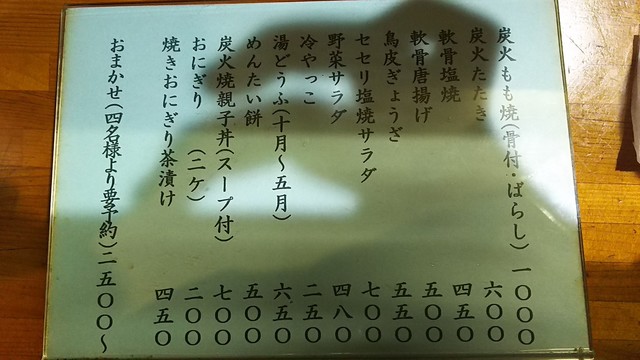 炭火もも焼(骨付・ばらし)一〇〇〇
炭火たたき 六〇〇
軟骨塩焼 四五〇
軟骨唐揚げ 五〇〇
鳥皮ぎょうざ 五五〇
セセリ塩焼サラダ 七〇〇
野菜サラダ 四八〇
冷やっこ 二五〇
湯どうふ(十月〜五月) 六五〇
めんたい餅 五〇〇
炭火焼親子丼(スープ付) 七〇〇
おにぎり(二ケ) 二〇〇
焼きおにぎり茶漬け 四五〇
おまかせ(四名様より要予約)二五〇〇〜